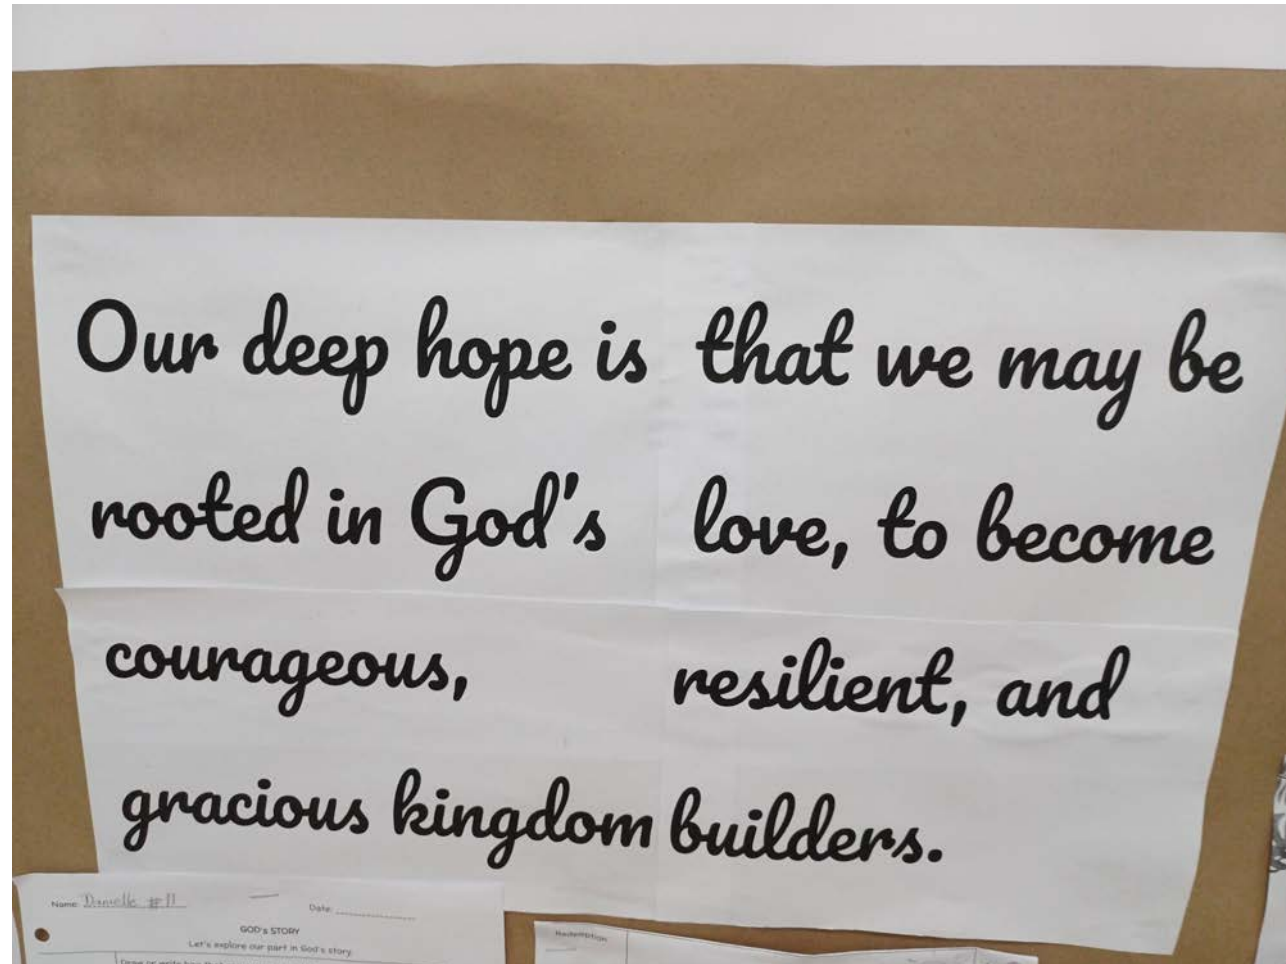 Our deep hope is that we may be
rooted in God's love, to become
courageous, resilient, and
gracious kingdom builders.
Name: Danielle #11 Date:
GOD's STORY
Let's explore our part in God's story.
Redemption